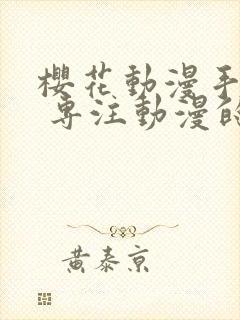 櫻花動漫手
專注動漫的
黃泰京